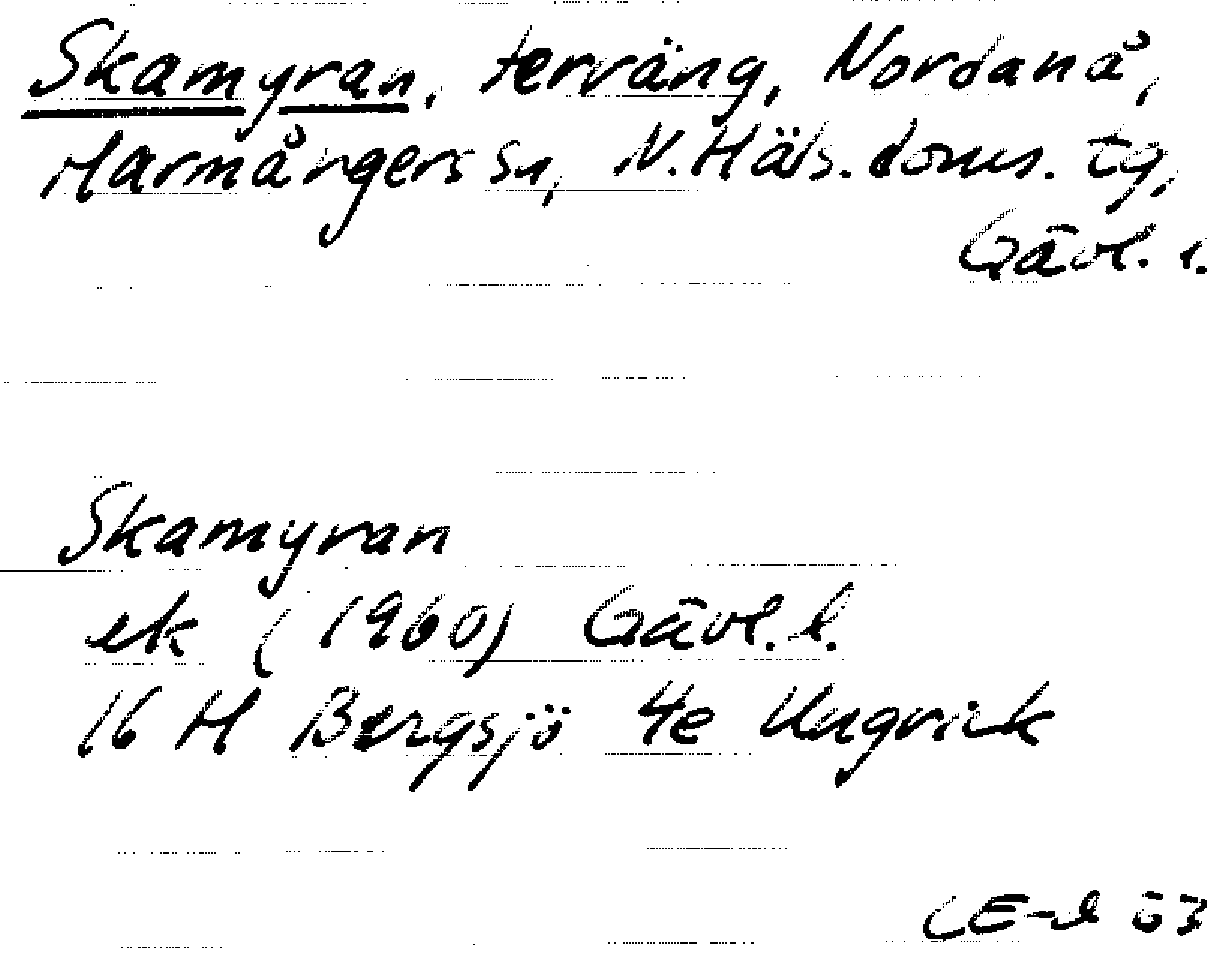 Skamyran, terräng, Nordanå,
Harmångers sn, N. Häls. doms. tg,
Gävl. l.
Skamyran
ek (1960) Gävl. l.
16 H Bergsjö 4e Ungvick